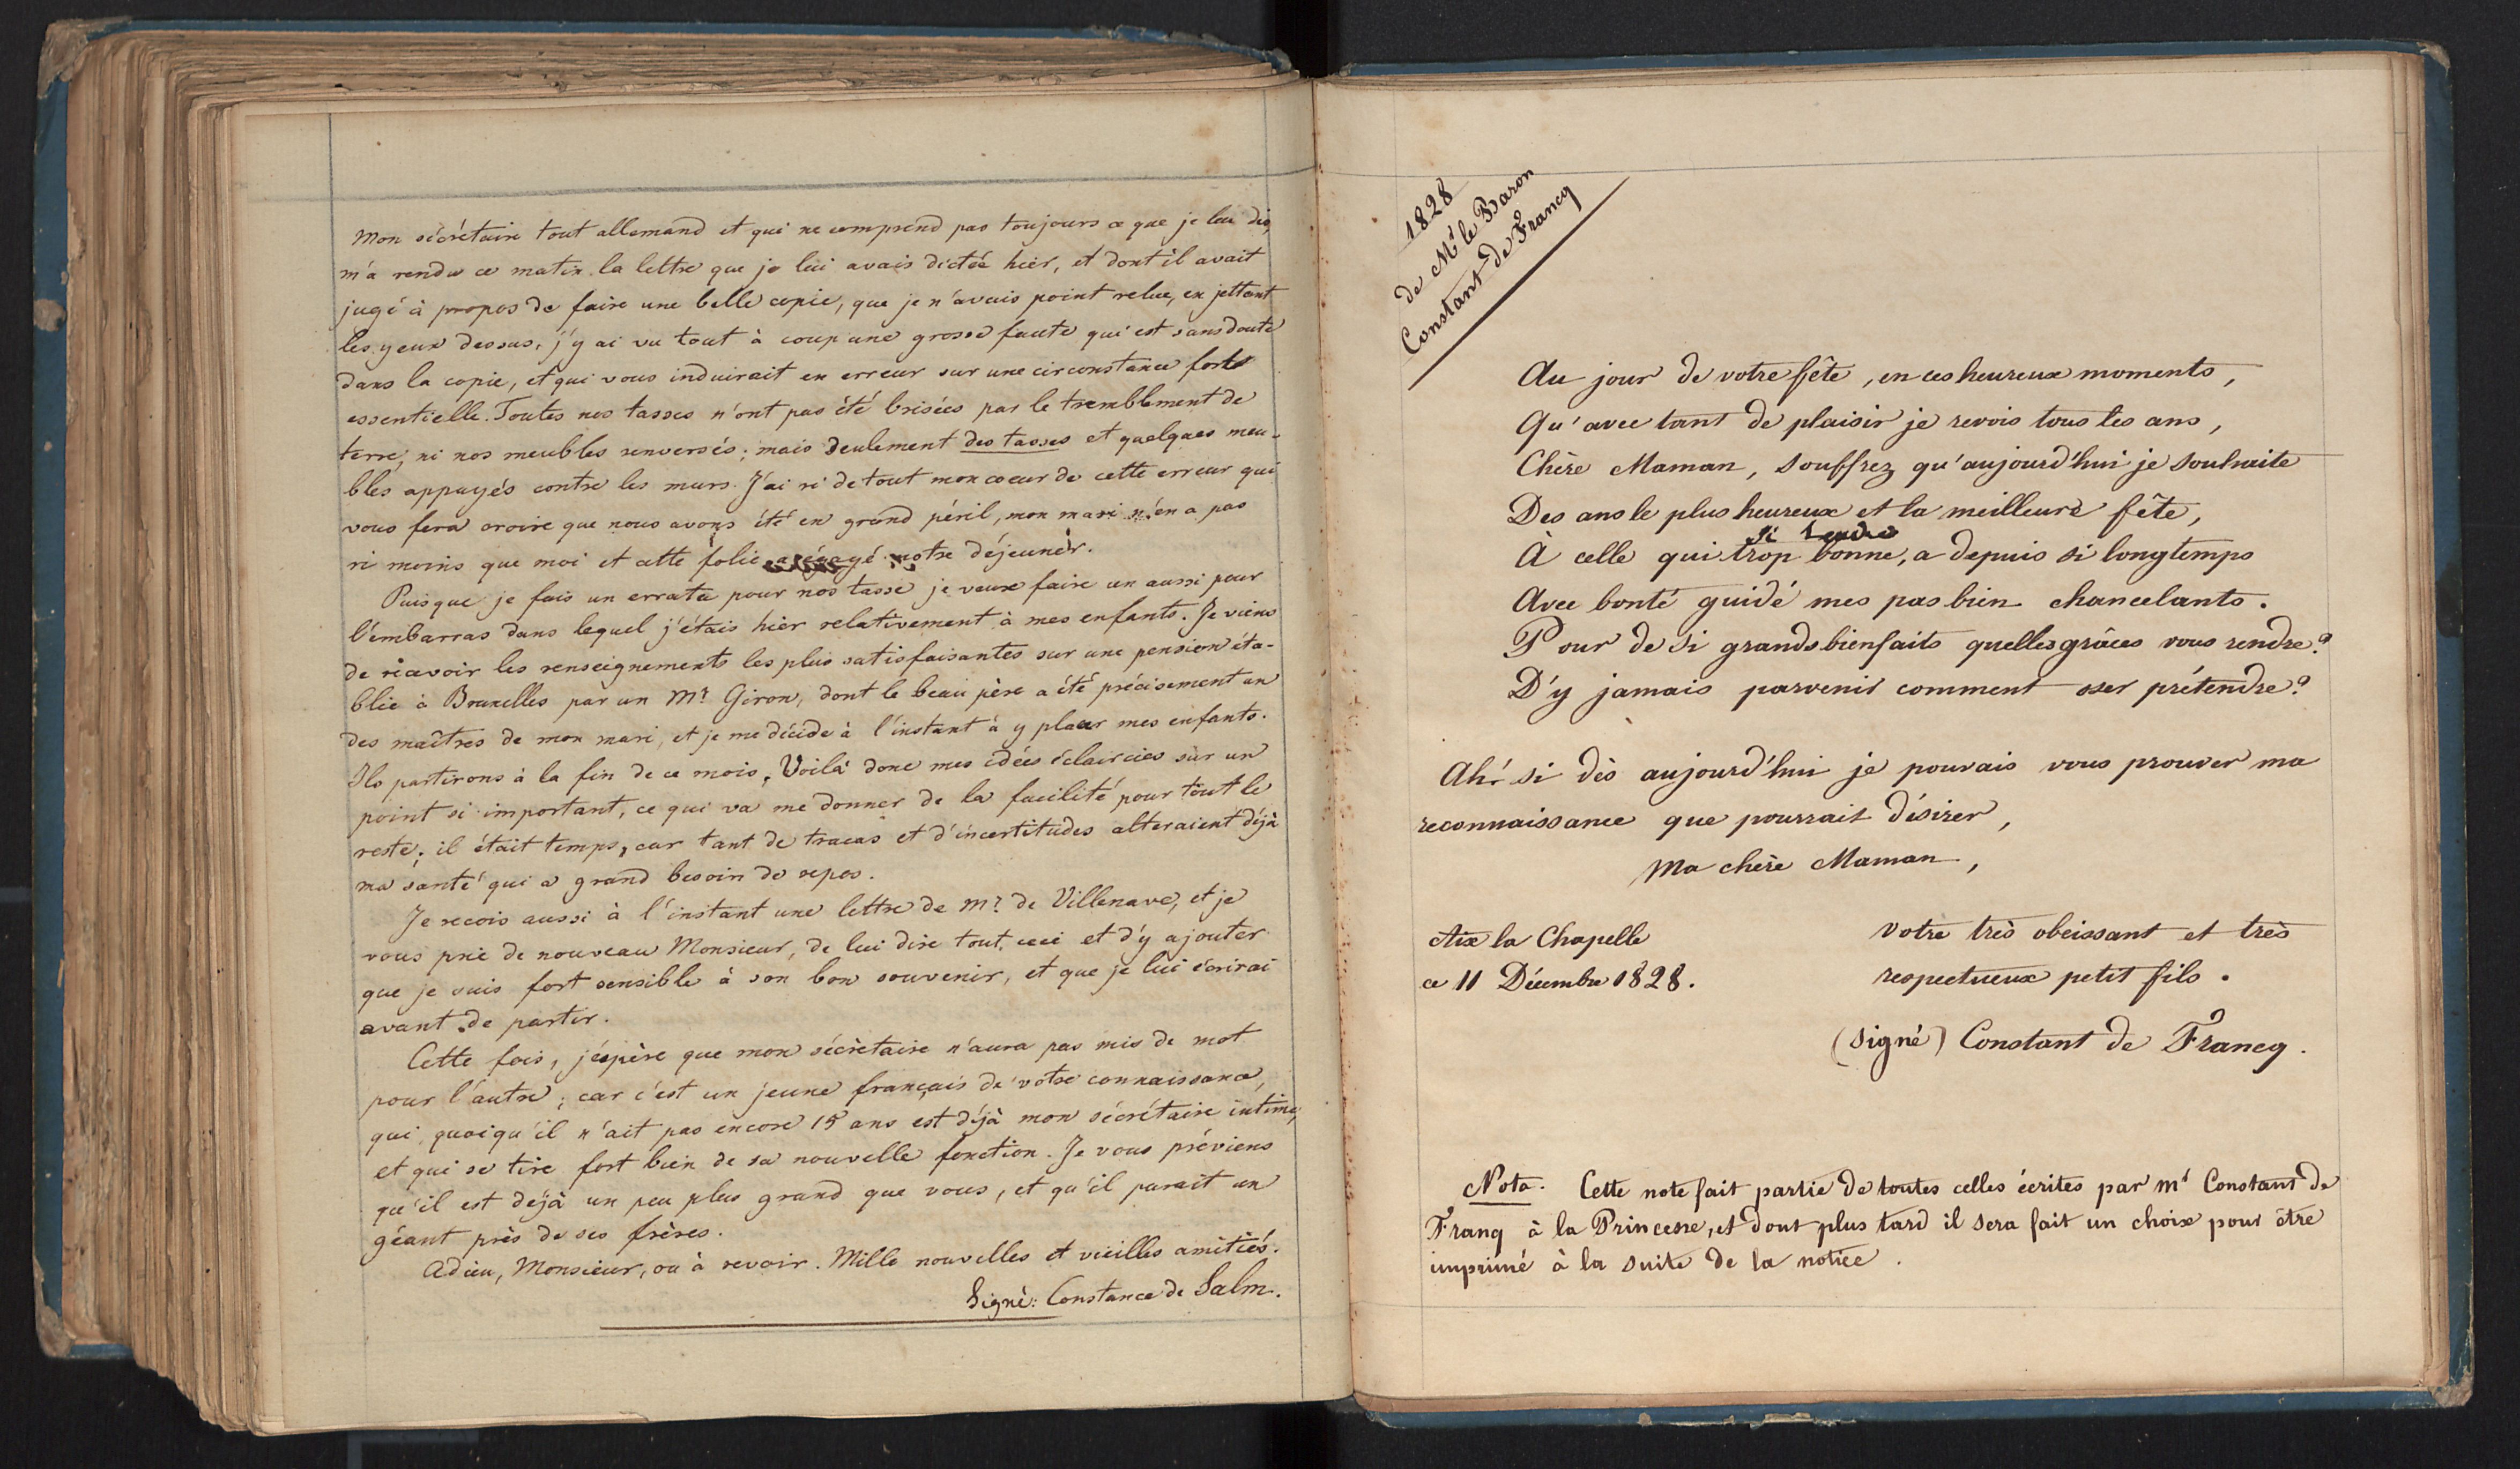 Mon sécrétaire tout allemand et qui ne comprend pas toujours ce que je lui dis,
m'a rendu ce matin la lettre que je lui avais dictée hier, et dont il avait
jugé à propos de faire une belle copie, que je n'avais point relue, en jettant
les yeux dessus, j'y ai vu tout à coup une grosse faute qui est sans doute
dans la copie, et qui vous induirait en erreur sur une circonstance forte
essentielle. Toutes nos tasses n'ont pas été brisées par le tremblement de
terre, ni nos meubles renversés; mais seulement des tasses et quelques meu-
bles appuyés contre les murs. J'ai ri de tout mon coeur de cette erreur qui
vous fera croire que nous avons été en grand péril, mon mari n'en a pas
ri moins que moi et cette folie a égayé notre déjeuner.
Puisque je fais un errata pour nos tasse je veux faire un aussi pour
l'embarras dans lequel j'étais hier relativement à mes enfants. Je viens
de récevoir les renseignements les plus satisfaisantes sur une pension éta-
blie à Bruxelles par un Mr. Giron, dont le beau père a été précisement un
des maîtres de mon mari, et je me décide à l'instant à y placer mes enfants.
Ils partirons à la fin de ce mois, Voilà donc mes idées éclaircies sur un
point si important, ce qui va me donner de la facilité pour tout le
reste; il était temps, car tant de tracas et d'incertitudes alteraient déjà
ma santé qui a grand besoin de repos.
Je recois aussi à l'instant une lettre de Mr. de Villenave, et je
vous prie de nouveau Monsieur, de lui dire tout ceci et d'y ajouter
que je suis fort sensible à son bon souvenir, et que je lui écrirai
avant de partir.
Cette fois, j'éspère que mon sécrètaire n'aura pas mis de mot
pour l'autre; car c'est un jeune français de votre connaissance,
qui, quoiqu'il n'ait pas encore 15 ans est déjà mon sécrétaire intime,
et qui se tire fort bien de sa nouvelle fonction. Je vous préviens
qu'il est dejà un peu plus grand que vous, et qu'il parait un
géant près de ses frères.
Adieu, Monsieur, ou à revoir. Mille nouvelles et vieilles amitiés.
Signé: Constance de Salm.
1828
de Mr le Baron
Constant de Francq
Au jour de votre fête, en ces heureux moments,
Qu'avec tant de plaisir je revois tous les ans,
Chère Maman, souffrez qu'aujourd'hui je souhaite
Des ans le plus heureux et la meilleure fête,
si tendre
À celle qui trop bonne, a depuis si longtemps
Avec bonté guidé mes pas bien chancelants.
Pour de si grands bienfaits quelles grâces vous rendre?
D'y jamais parvenir comment oser prétendre?
Ah! si dès aujourd'hui je pouvais vous prouver ma
reconnaissance que pourrait désirer,
Ma chère Maman,
Aix la Chapelle
ce 11 Décembre 1828.
votre très obéissant et très
respectueux petit fils.
(signé) Constant de Francq.
Nota. Cette note fait partie de toutes celles écrites par Mr Constant de
Franq à la Princesse, et dont plus tard il sera fait un choix pour être
imprimé à la suite de la notice.